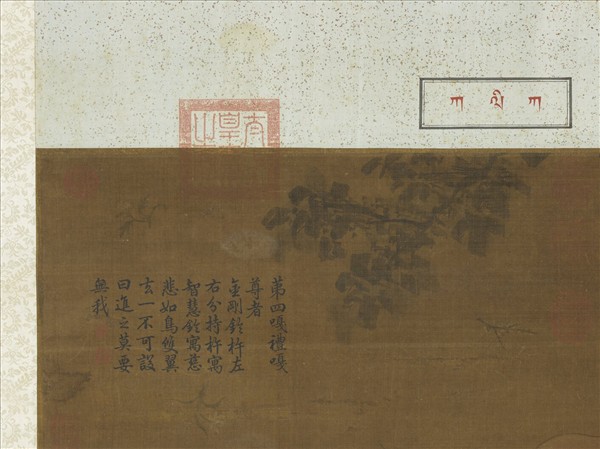 ཀ ལི ཀ
太皇之
第四嘎禮嘎
尊者
金剛鈴杵左
右分持杵寓
智慧鈴寓慈
悲如鳥雙翼
去一不可設
曰進之莫要
無我